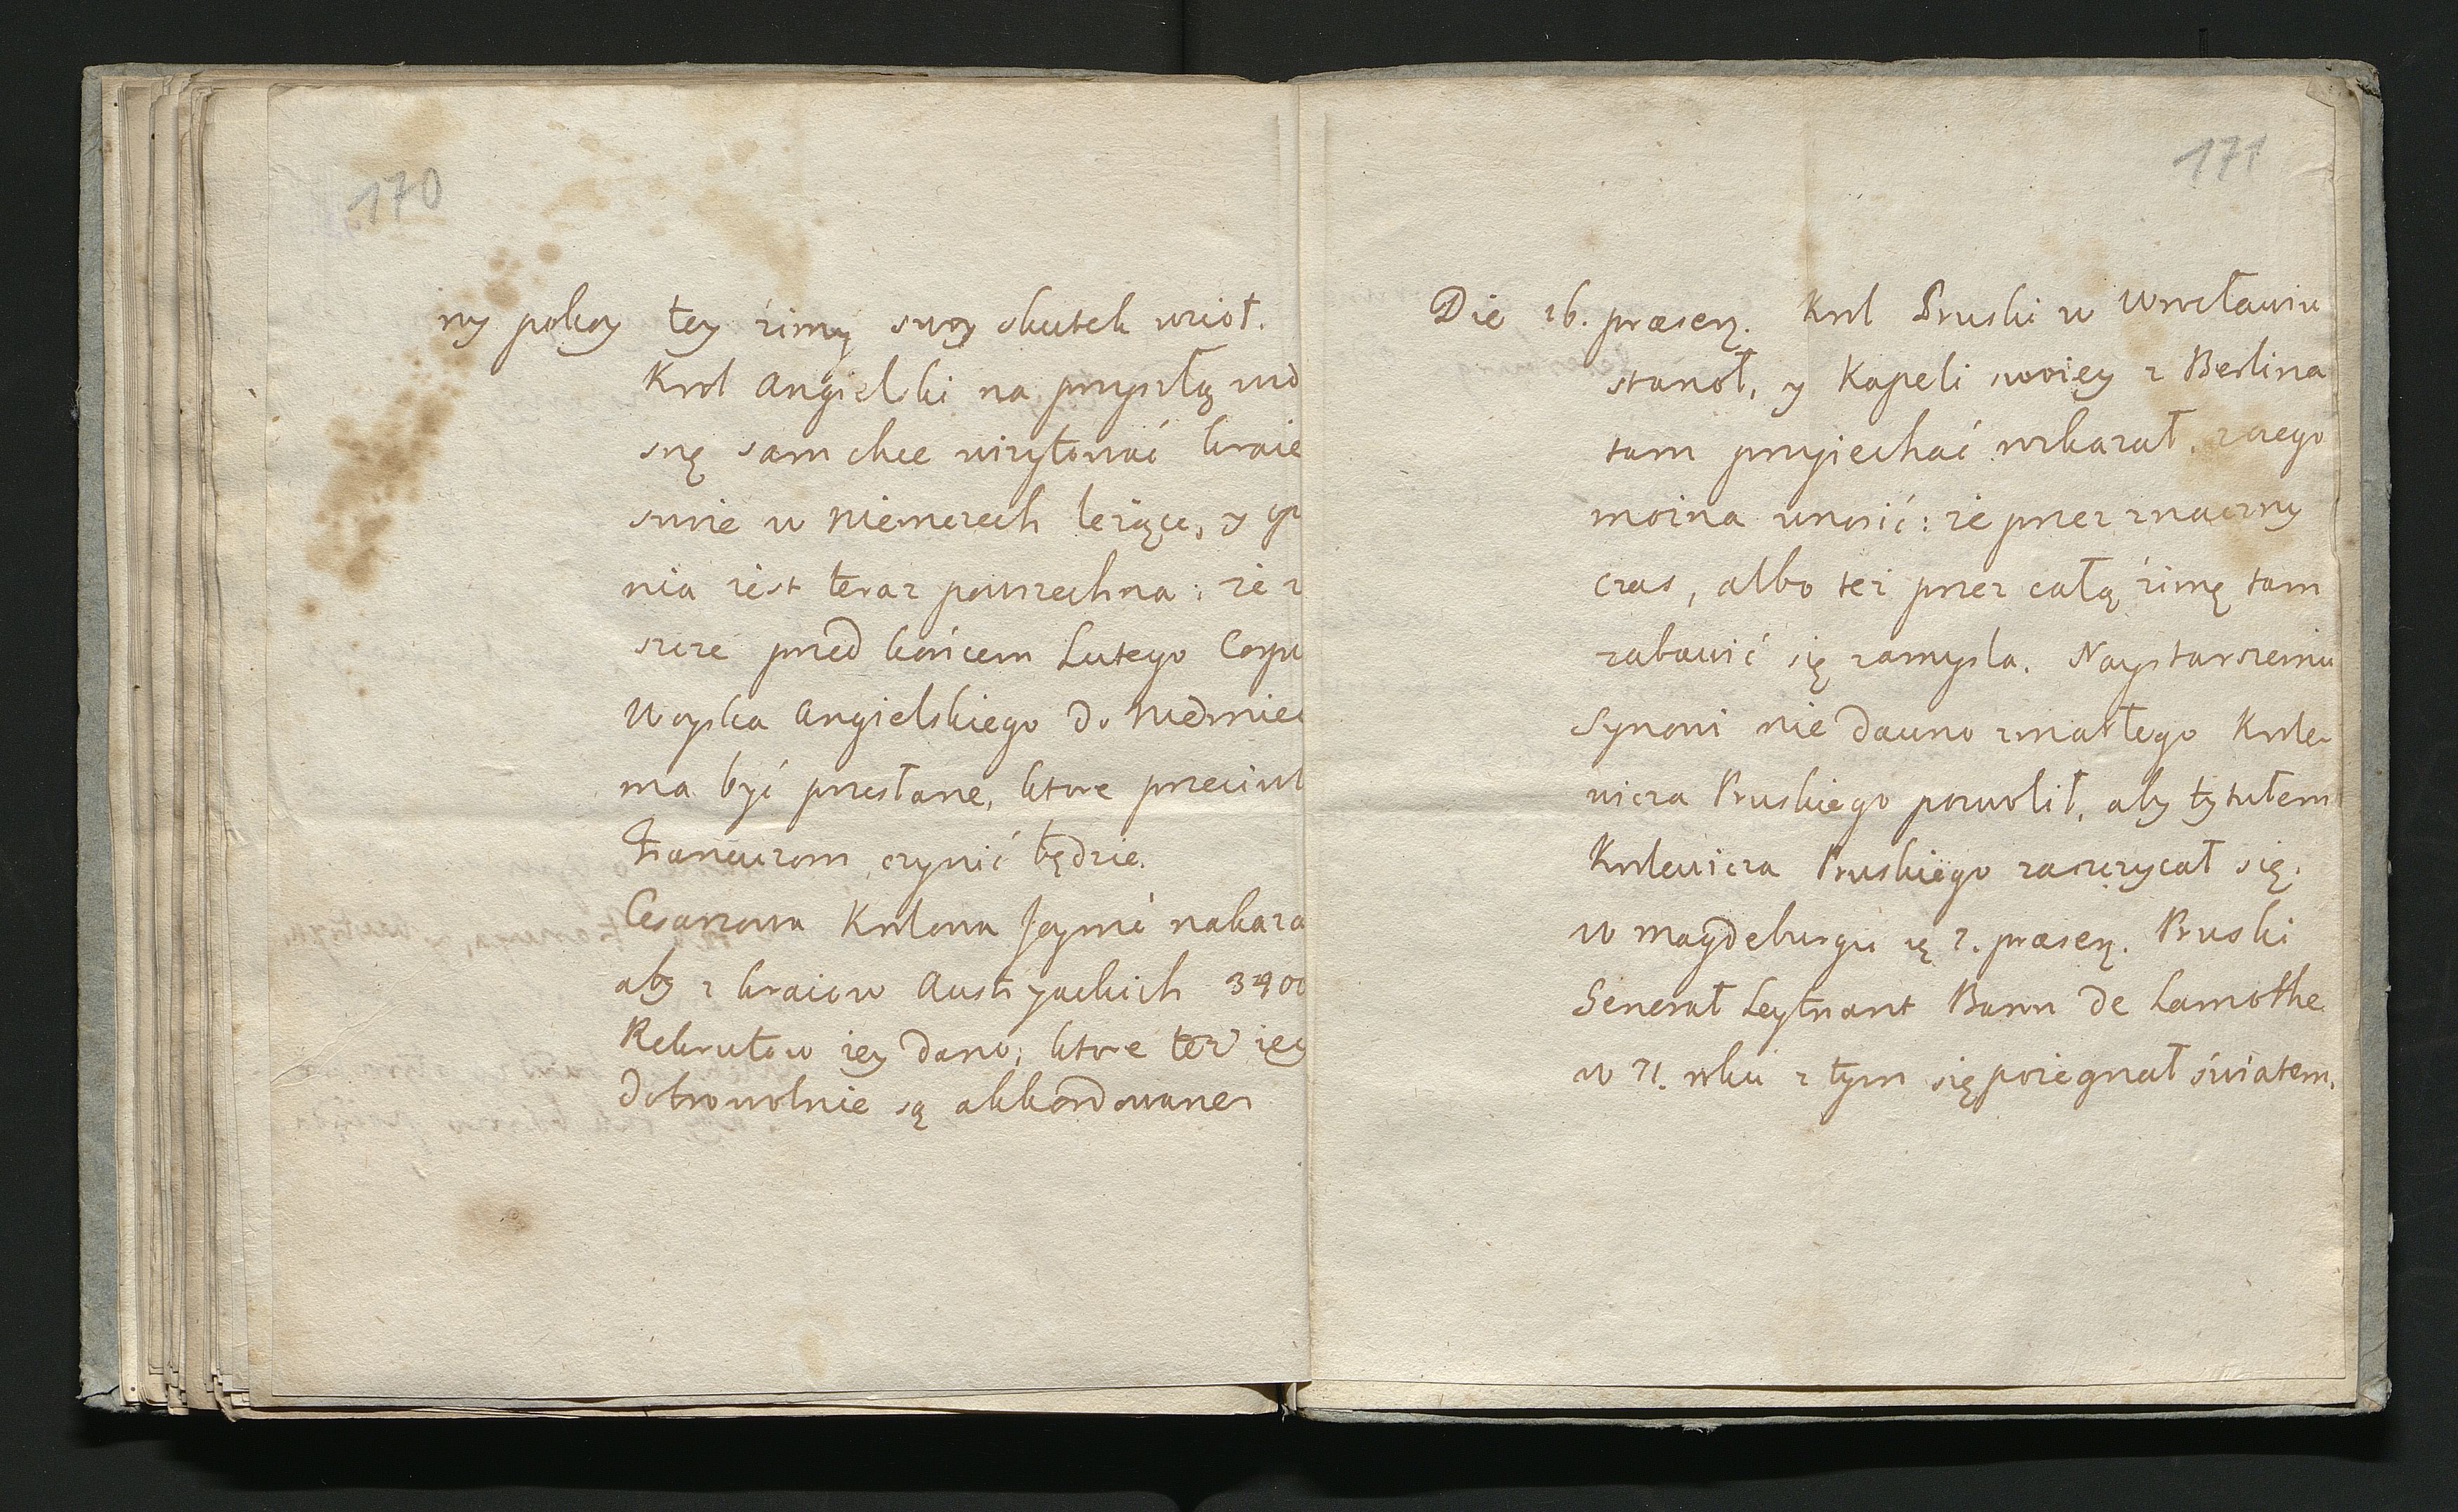 170
ny pokoy tey zimy swoy skutek wzioł.
Krol Angielski na przyszłą wio
snę sam chce wizytować kraie
swoie w Niemczech leżące, y opi
nia iest teraz powszechna: że
szcze przed końcem Lutego Corpu
Woyska Angielskiego do Niedmiec
ma być przesłane, ktore przeciwk
Francuzom czynić będzie.
Cesarzowa Krolowa Jeymć nakaza
aby z kraiow Austryackich 3400
Rekrutow iey dano, ktore też iey
dobrowolnie są akkordowane
171
Die 16. præsen. Krol Pruski w Wrocławiu
stanoł, y Kapeli swoiey z Berlina
tam przyiechać rozkazał, z czego
można wnosić: że przez znaczny
czas, albo też przez całą zimę tam
zabawić się zamysla. Naystarszemu
Synowi nie dawno zmarłego Krole-
wicza Pruskiego pozwolił, aby tytułem
Krolewicza Pruskiego zaszczycał się.
w Magdeburgu præsen. Pruski
Generał Leytnant Baron de Lamothe
w 71. roku z tym się pożegnał światem.